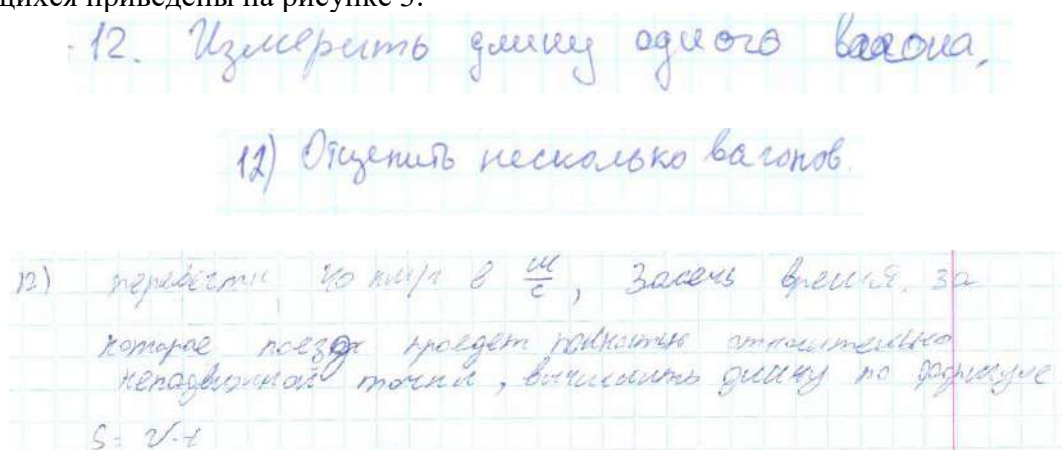 щихся приведены на рисунке 3.
12. Измерить длину одного вагона.
12) Отцепить несколько вагонов.
12) перевести 40 км/ч в м/с, Засечь время, за
которое поезд проедет полностью относительно
неподвижной точки, вычислить длину по формуле
S = V·t